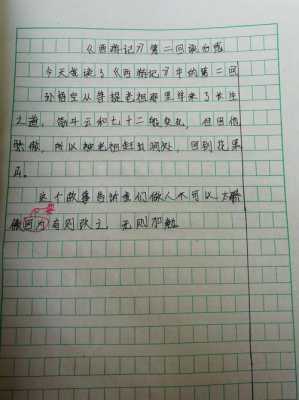 《西游记》第二回读后感
今天我读了《西游记》中的第二回
孙悟空从菩提老祖那里学来了长生
之道，筋斗云和七十二般变化，但因他
骄傲，所以被老祖赶出洞处，回到花果
山。
这个故事告诉我们做人不可以太骄
傲因为有则改之，无则加勉。